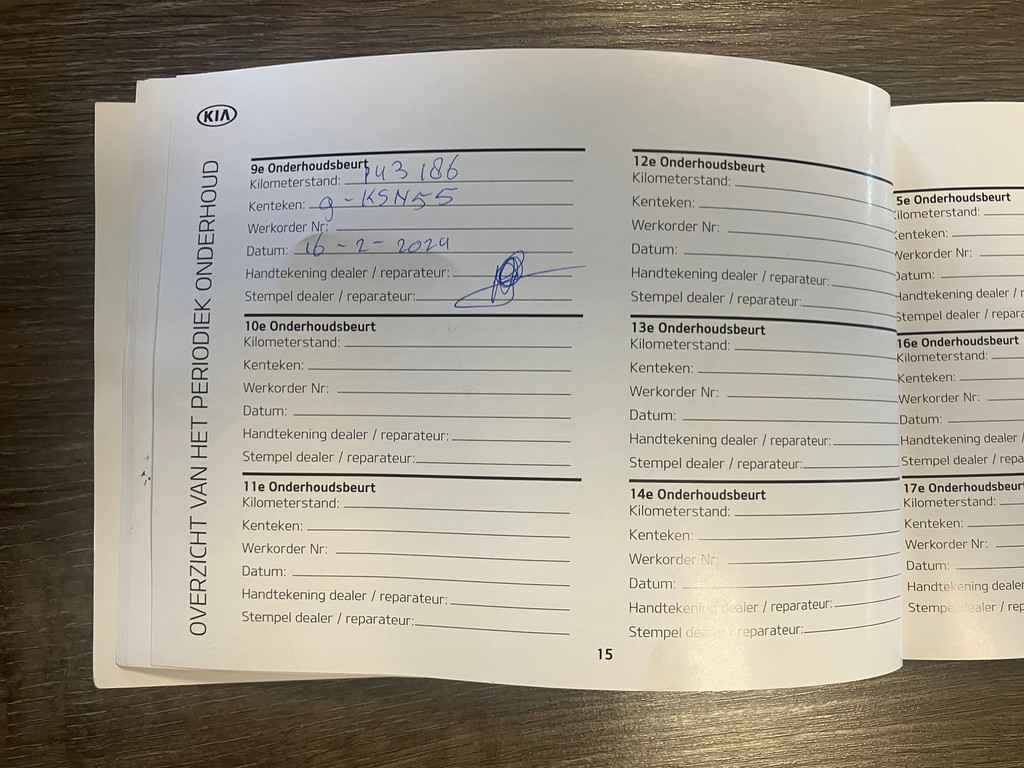 KIA
OVERZICHT VAN HET PERIODIEK ONDERHOUD
9e Onderhoudsbeurt
Kilometerstand: 143 186
Kenteken: g-KSN55
Werkorder Nr:
Datum: 16-2-2024
Handtekening dealer / reparateur:
Stempel dealer / reparateur:
10e Onderhoudsbeurt
Kilometerstand:
Kenteken:
Werkorder Nr:
Datum:
Handtekening dealer / reparateur:
Stempel dealer / reparateur:
11e Onderhoudsbeurt
Kilometerstand:
Kenteken:
Werkorder Nr:
Datum:
Handtekening dealer / reparateur:
Stempel dealer / reparateur:
12e Onderhoudsbeurt
Kilometerstand:
Kenteken:
Werkorder Nr:
Datum:
Handtekening dealer / reparateur:
Stempel dealer / reparateur:
13e Onderhoudsbeurt
Kilometerstand:
Kenteken:
Werkorder Nr:
Datum:
Handtekening dealer / reparateur:
Stempel dealer / reparateur:
14e Onderhoudsbeurt
Kilometerstand:
Kenteken:
Werkorder Nr:
Datum:
Handtekening dealer / reparateur:
Stempel dealer / reparateur:
15
5e Onderhoudsbeurt
ilometerstand:
enteken:
Werkorder Nr:
Datum:
Handtekening dealer / r
Stempel dealer / repara
16e Onderhoudsbeurt
Kilometerstand:
Kenteken:
Werkorder Nr:
Datum:
Handtekening dealer /
Stempel dealer / repa
17e Onderhoudsbeur
Kilometerstand:
Kenteken:
Werkorder Nr:
Datum:
Handtekening dealer
Stempel dealer / rep